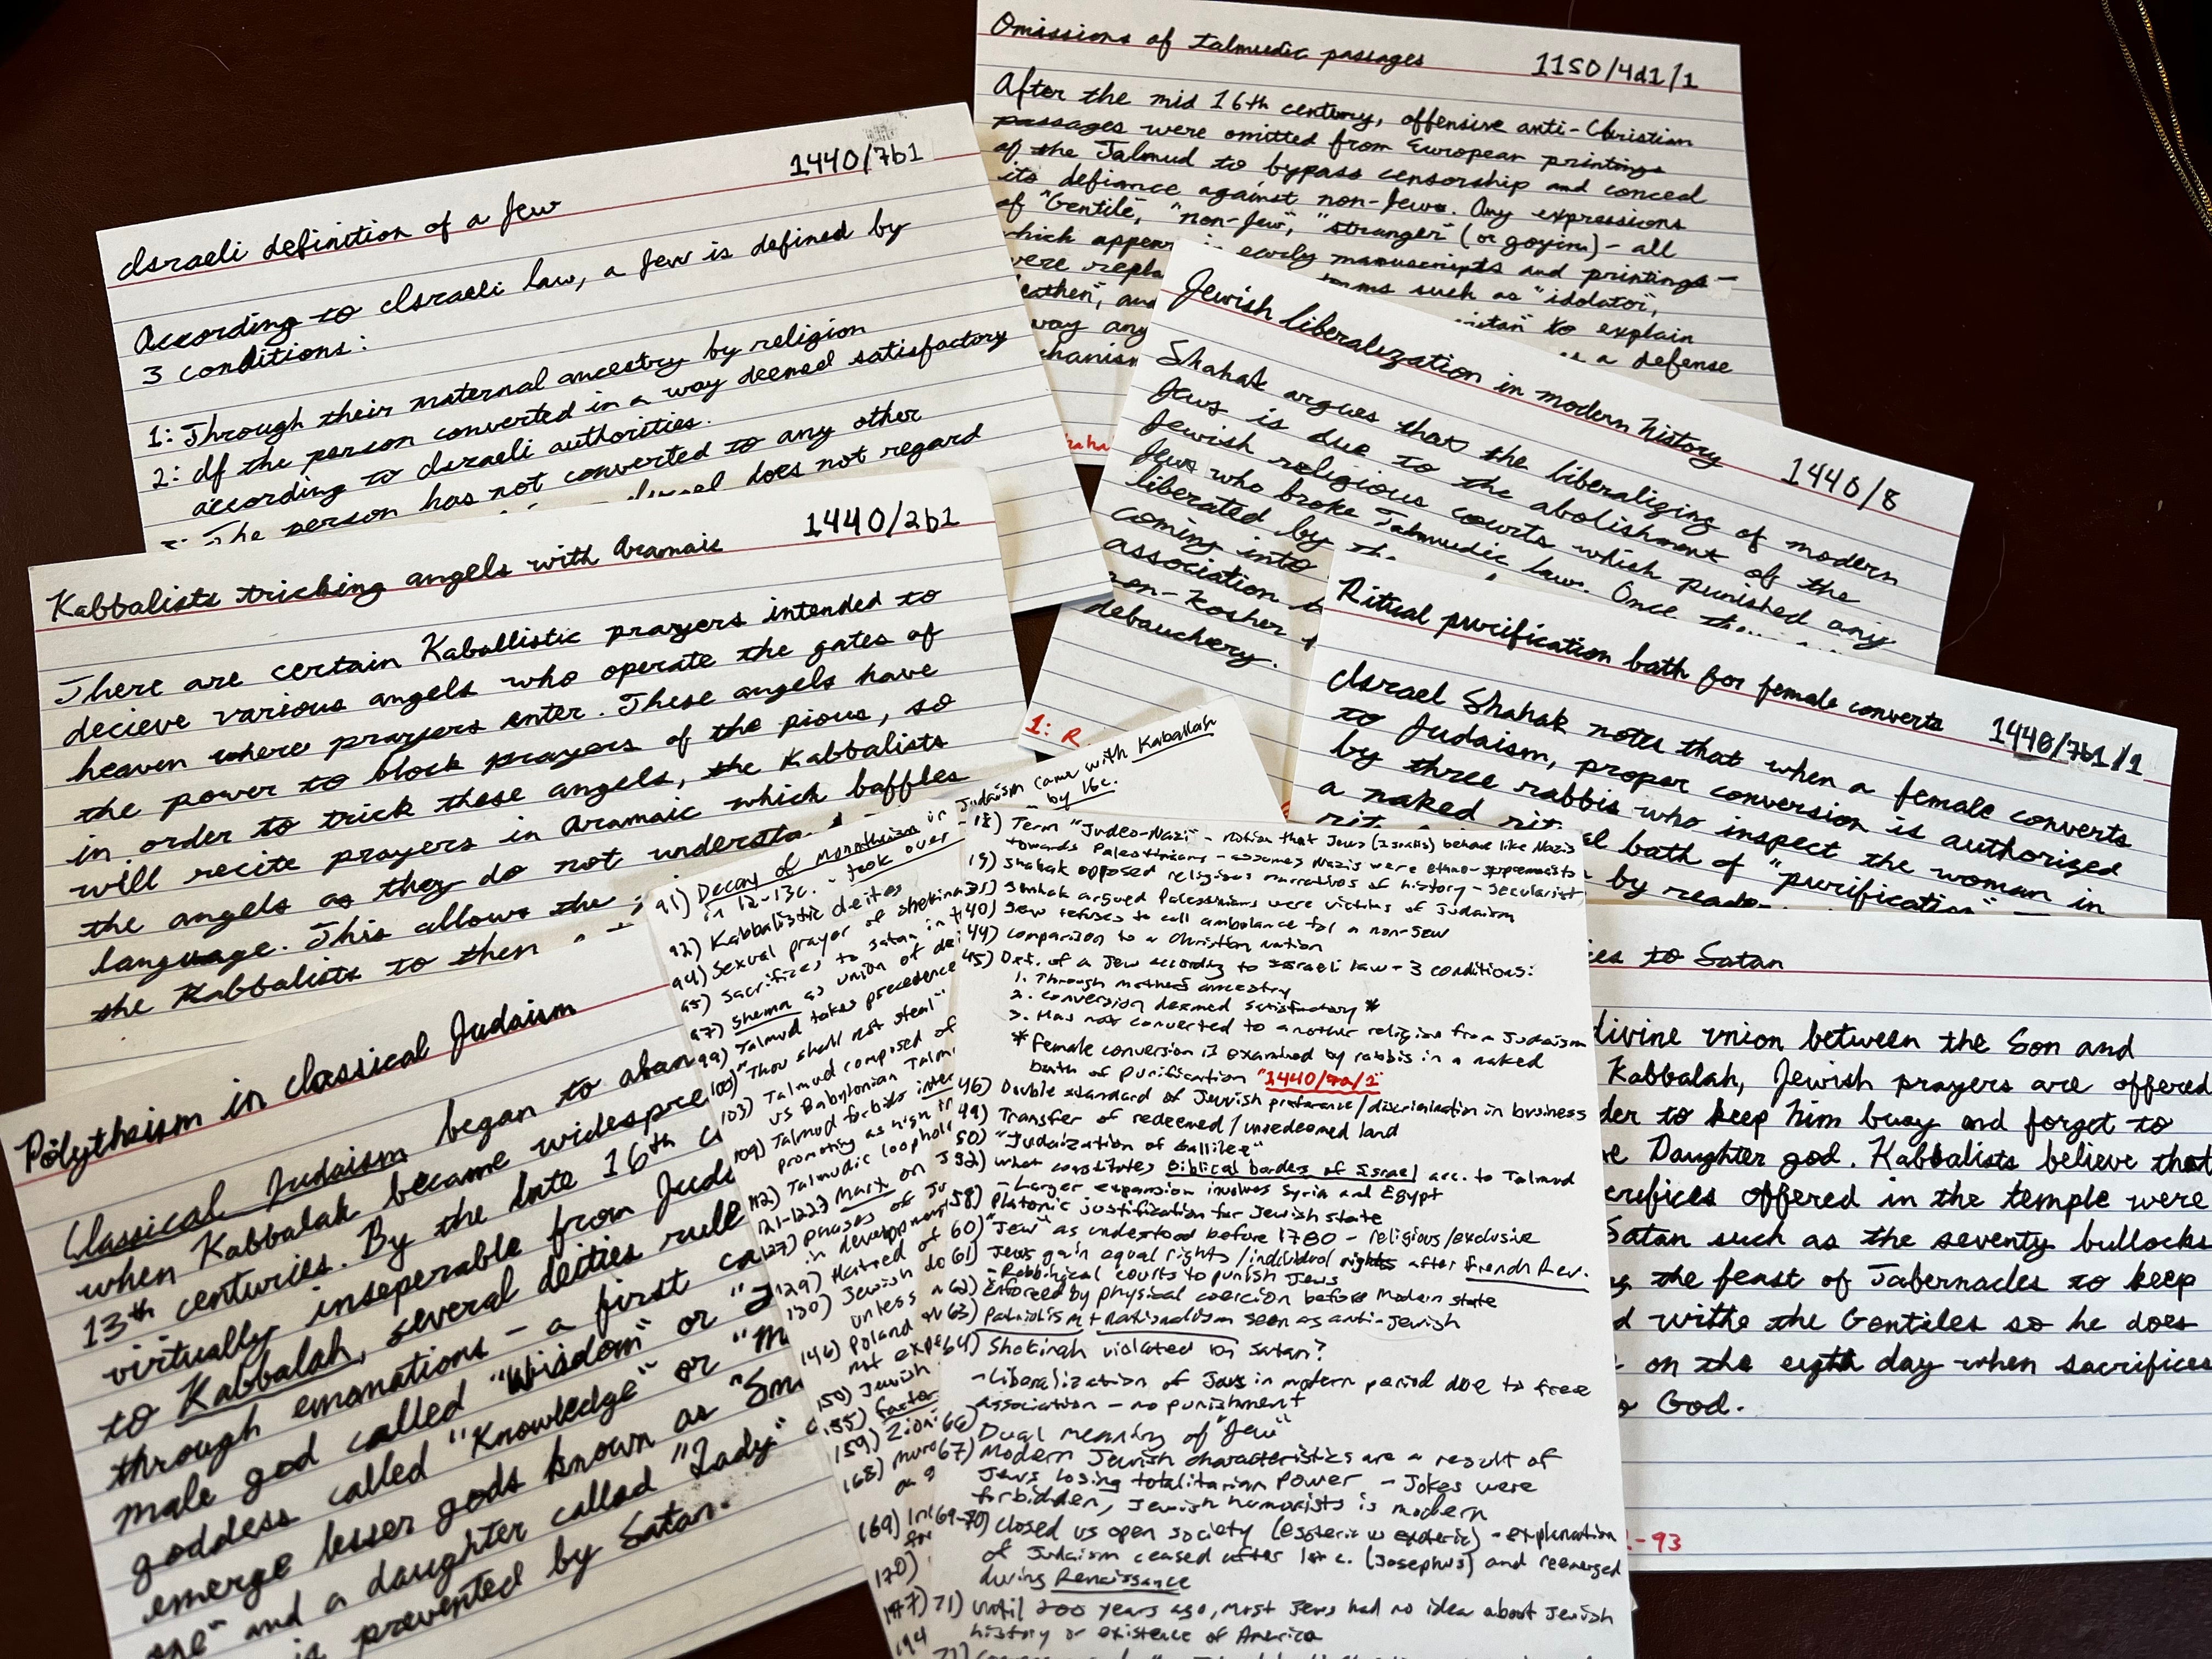 Omissions of Talmudic passages 1150/4d1/1
After the mid 16th century, offensive anti-Christian
passages were omitted from European printings
of the Talmud to bypass censorship and conceal
its defiance against non-Jews. Any expressions
of "Gentile", "non-Jew", "stranger" (or goyim) - all
which appear in early manuscripts and printings -
were repla such as "idolator",
eathen", to explain
way any a defense
chanism
Israeli definition of a Jew 1440/7b1
According to Israeli law, a Jew is defined by
3 conditions:
1: Through their maternal ancestry by religion
2: If the person converted in a way deemed satisfactory
according to Israeli authorities.
3: The person has not converted to any other
Israel does not regard
Jewish liberalization in modern history 1440/8
Shahak argues that the liberalizing of modern
Jews is due to the abolishment of the
Jewish religious courts which punished any
Jew who broke Talmudic law. Once
liberated by
coming into
association
non-Kosher
debauchery.
1: R
Kabbalists tricking angels with Aramaic 1440/2b1
There are certain Kaballistic prayers intended to
decieve various angels who operate the gates of
heaven where prayers enter. These angels have
the power to block prayers of the pious, so
in order to trick these angels, the Kabbalists
will recite prayers in Aramaic which baffles
the angels as they do not understa
language. This allows the
the Kabbalists to then
Ritual purification bath for female converts 1440/7b1/1
Israel Shahak notes that when a female converts
to Judaism, proper conversion is authorized
by three rabbis who inspect the woman in
a naked ritual bath of "purification" -
by
Polytheism in classical Judaism
Classical Judaism began to aban
when Kabbalah became widespre
13th centuries. By the late 16th c
virtually inseperable from Juda
to Kabbalah, several deities rule
through emanations - a first ca
male god called "Wisdom" or "
goddess called "Knowledge" or "M
emerge lesser gods known as "Sma
one" and a daughter called "Lady"
is prevented by Satan.
91) Decay of monotheism in Judaism came with Kaballah
in 12-13c. - took over - by 16c.
92) Kabbalistic deites
94) Sexual prayer of
95) Sacrifices to satan in
97) Shema as union of dei
99) Talmud takes precedence
100) "Thou shall not steal"
103) Talmud composed of
vs Babylonian Talm
109) Talmud forbids inter
promoting as high in
112) Talmudic loophole
121-122) Marx on J
127) phases of Ju
in development
129) Hatred of
130) Jewish do
unless
146) Poland
not expe
150) Jewish
155) factor
159) Zion
168) 
as a
169) In
170)
194
18) Term "Judeo-Nazi" - notion that Jews (Israelis) behave like Nazis
towards Palestinians - assumes Nazis were ethno-supremacists
19) Shahak opposed religious narratives of history - secularist
Shahak argued Palestinians were victims of Judaism
40) Jew refuses to call ambulance for a non-Jew
44) comparison to a Christian nation
45) Def. of a Jew according to Israeli law - 3 conditions:
1. Through mothers ancestry
2. Conversion deemed satisfactory *
3. Has not converted to another religion from Judaism
* female conversion is examined by rabbis in a naked
bath of purification "1440/7a/1"
46) Double standard of Jewish preference/discrimination in business
49) Transfer of redeemed/unredeemed land
50) "Judaization of Gallilee"
52) what constitutes Biblical borders of Israel acc. to Talmud
- Larger expansion involves Syria and Egypt
58) Platonic justification for Jewish state
60) "Jew" as understood before 1780 - religious/exclusive
61) Jews gain equal rights/individual rights after French Rev.
- Rabbinical courts to punish Jews
62) Enforced by physical coercion before modern state
63) Patriotism + Nationalism seen as anti-Jewish
64) Shekinah violated by Satan?
- Liberalization of Jews in modern period due to free
association - no punishment
66) Dual meaning of "Jew"
67) Modern Jewish characteristics are a result of
Jews losing totalitarian power - Jokes were
forbidden, Jewish humorists is modern
69-70) closed vs open society (esoteric vs exoteric) - explanation
of Judaism ceased after 1st c. (Josephus) and reemerged
during Renaissance
71) until 200 years ago, most Jews had no idea about Jewish
history or existence of America
ces to Satan
divine union between the Son and
Kabbalah, Jewish prayers are offered
der to keep him busy and forget to
e Daughter god. Kabbalists believe that
crifices offered in the temple were
Satan such as the seventy bullocks
g the feast of Tabernacles to keep
d withe the Gentiles so he does
on the eigth day when sacrifices
o God.
-93